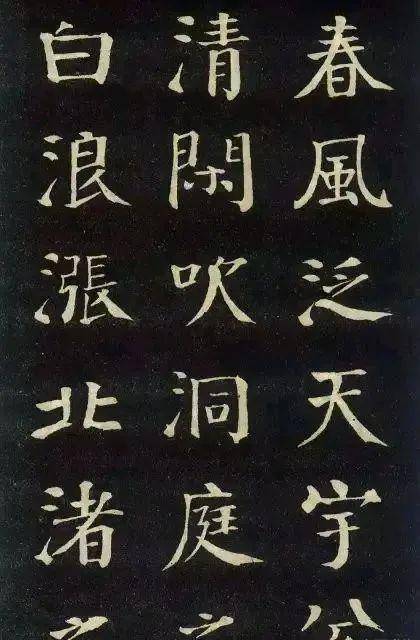 春風泛天宇
清閑吹洞庭
白浪漲北渚